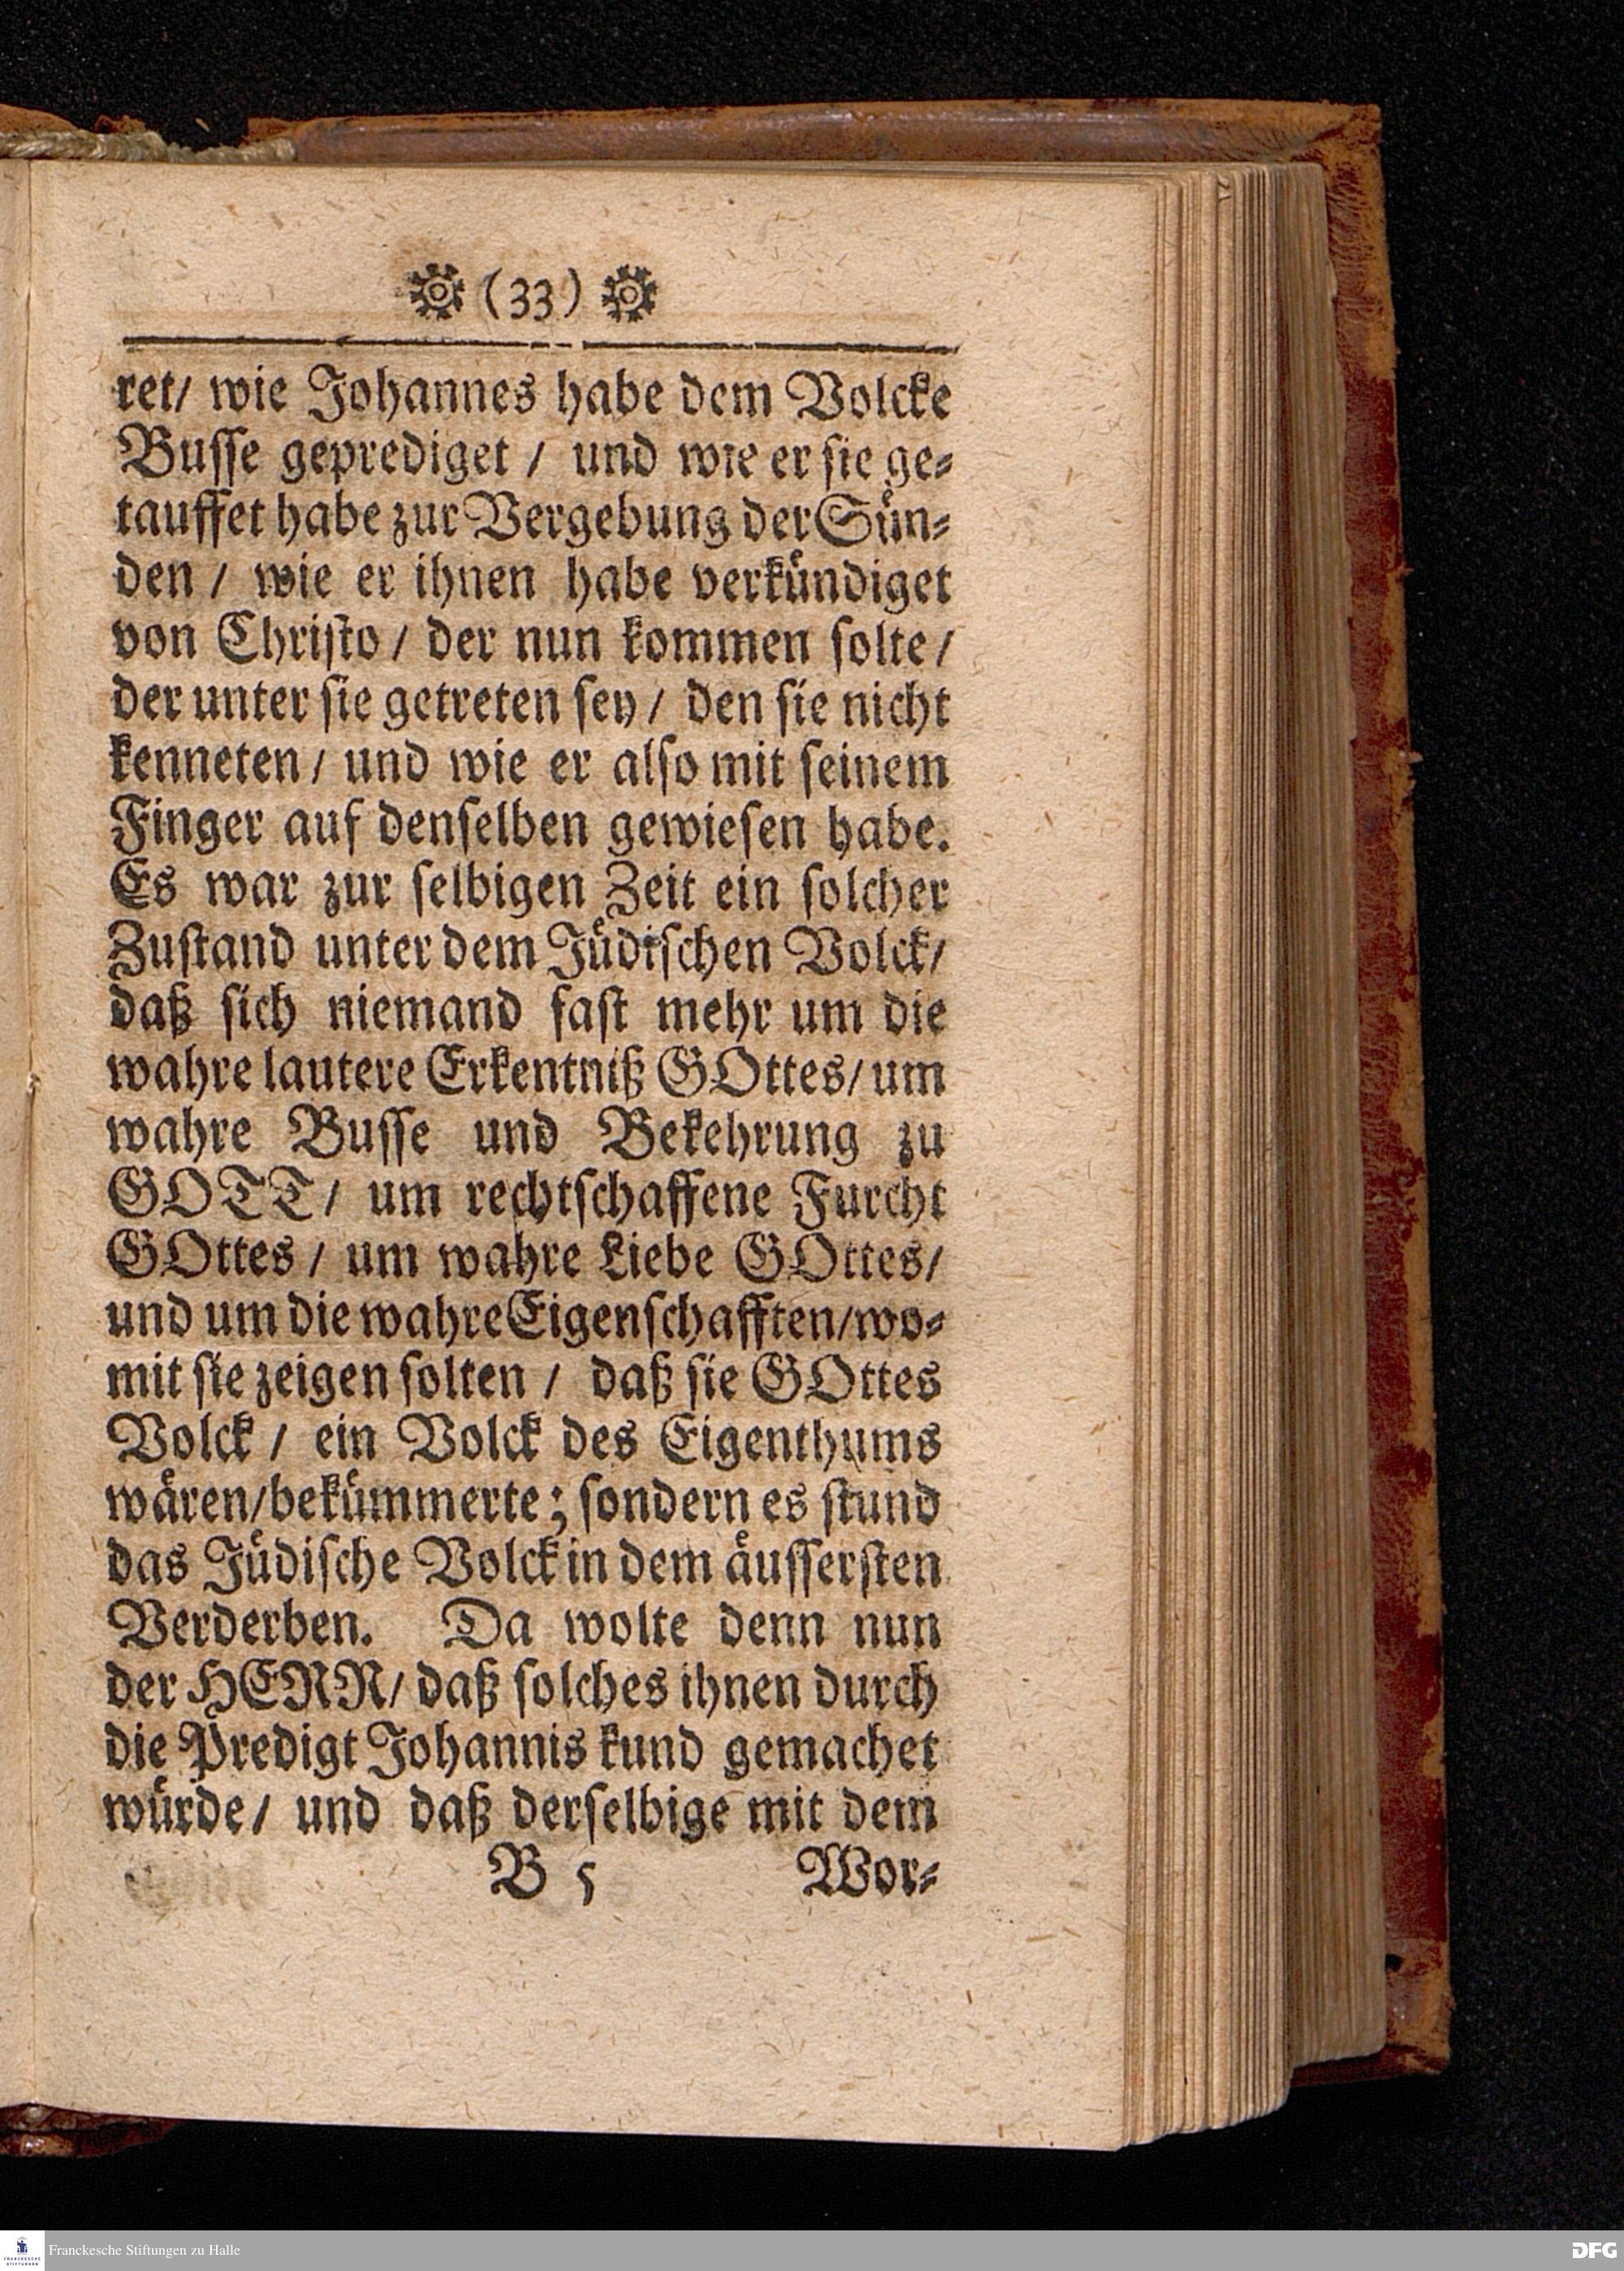 (33)
ret/ wie Johannes habe dem Volcke
Busse geprediget / und wie er sie ge-
tauffet habe zur Vergebung der Sün-
den / wie er ihnen habe verkündiget
von Christo / der nun kommen solte/
der unter sie getreten sey / den sie nicht
kenneten / und wie er also mit seinem
Finger auf denselben gewiesen habe.
Es war zur selbigen Zeit ein solcher
Zustand unter dem Jüdischen Volck/
daß sich niemand fast mehr um die
wahre lautere Erkentniß GOttes/ um
wahre Busse und Bekehrung zu
GOTT/ um rechtschaffene Furcht
GOttes / um wahre Liebe GOttes/
und um die wahre Eigenschafften/wo-
mit sie zeigen solten / daß sie GOttes
Volck / ein Volck des Eigenthums
wären/bekümmerte; sondern es stund
das Jüdische Volck in dem äussersten
Verderben. Da wolte denn nun
der HERR/ daß solches ihnen durch
die Predigt Johannis kund gemachet
würde/ und daß derselbige mit dem
B 5 Wor-
FRANCKESCHE STIFTUNGEN
Franckesche Stiftungen zu Halle
DFG